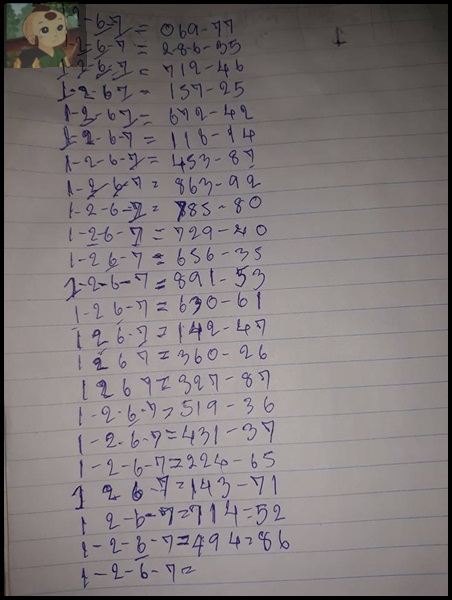 -6-7 = 069-77
-2-6-7 = 286-35
1-2-6-7 = 712-46
1-2-67 = 157-25
1-2-67 = 672-42
1-2-6-7 = 118-14
1-2-6-7 = 453-87
1-2-6-7 = 863-92
1-2-6-7 = 785-80
1-26-7 = 729-40
1-26-7 = 656-35
1-2-6-7 = 891-53
1-26-7 = 630-61
1 26-7 = 142-47
1 267 = 360-26
1 267 = 327-87
1-2-6-7 = 519-36
1-2-6-7 = 431-37
1-2-6-7 = 224-65
1 26-7 = 143-71
1 2-6-7 = 714=52
1-2-6-7 = 494=86
1-2-6-7 =